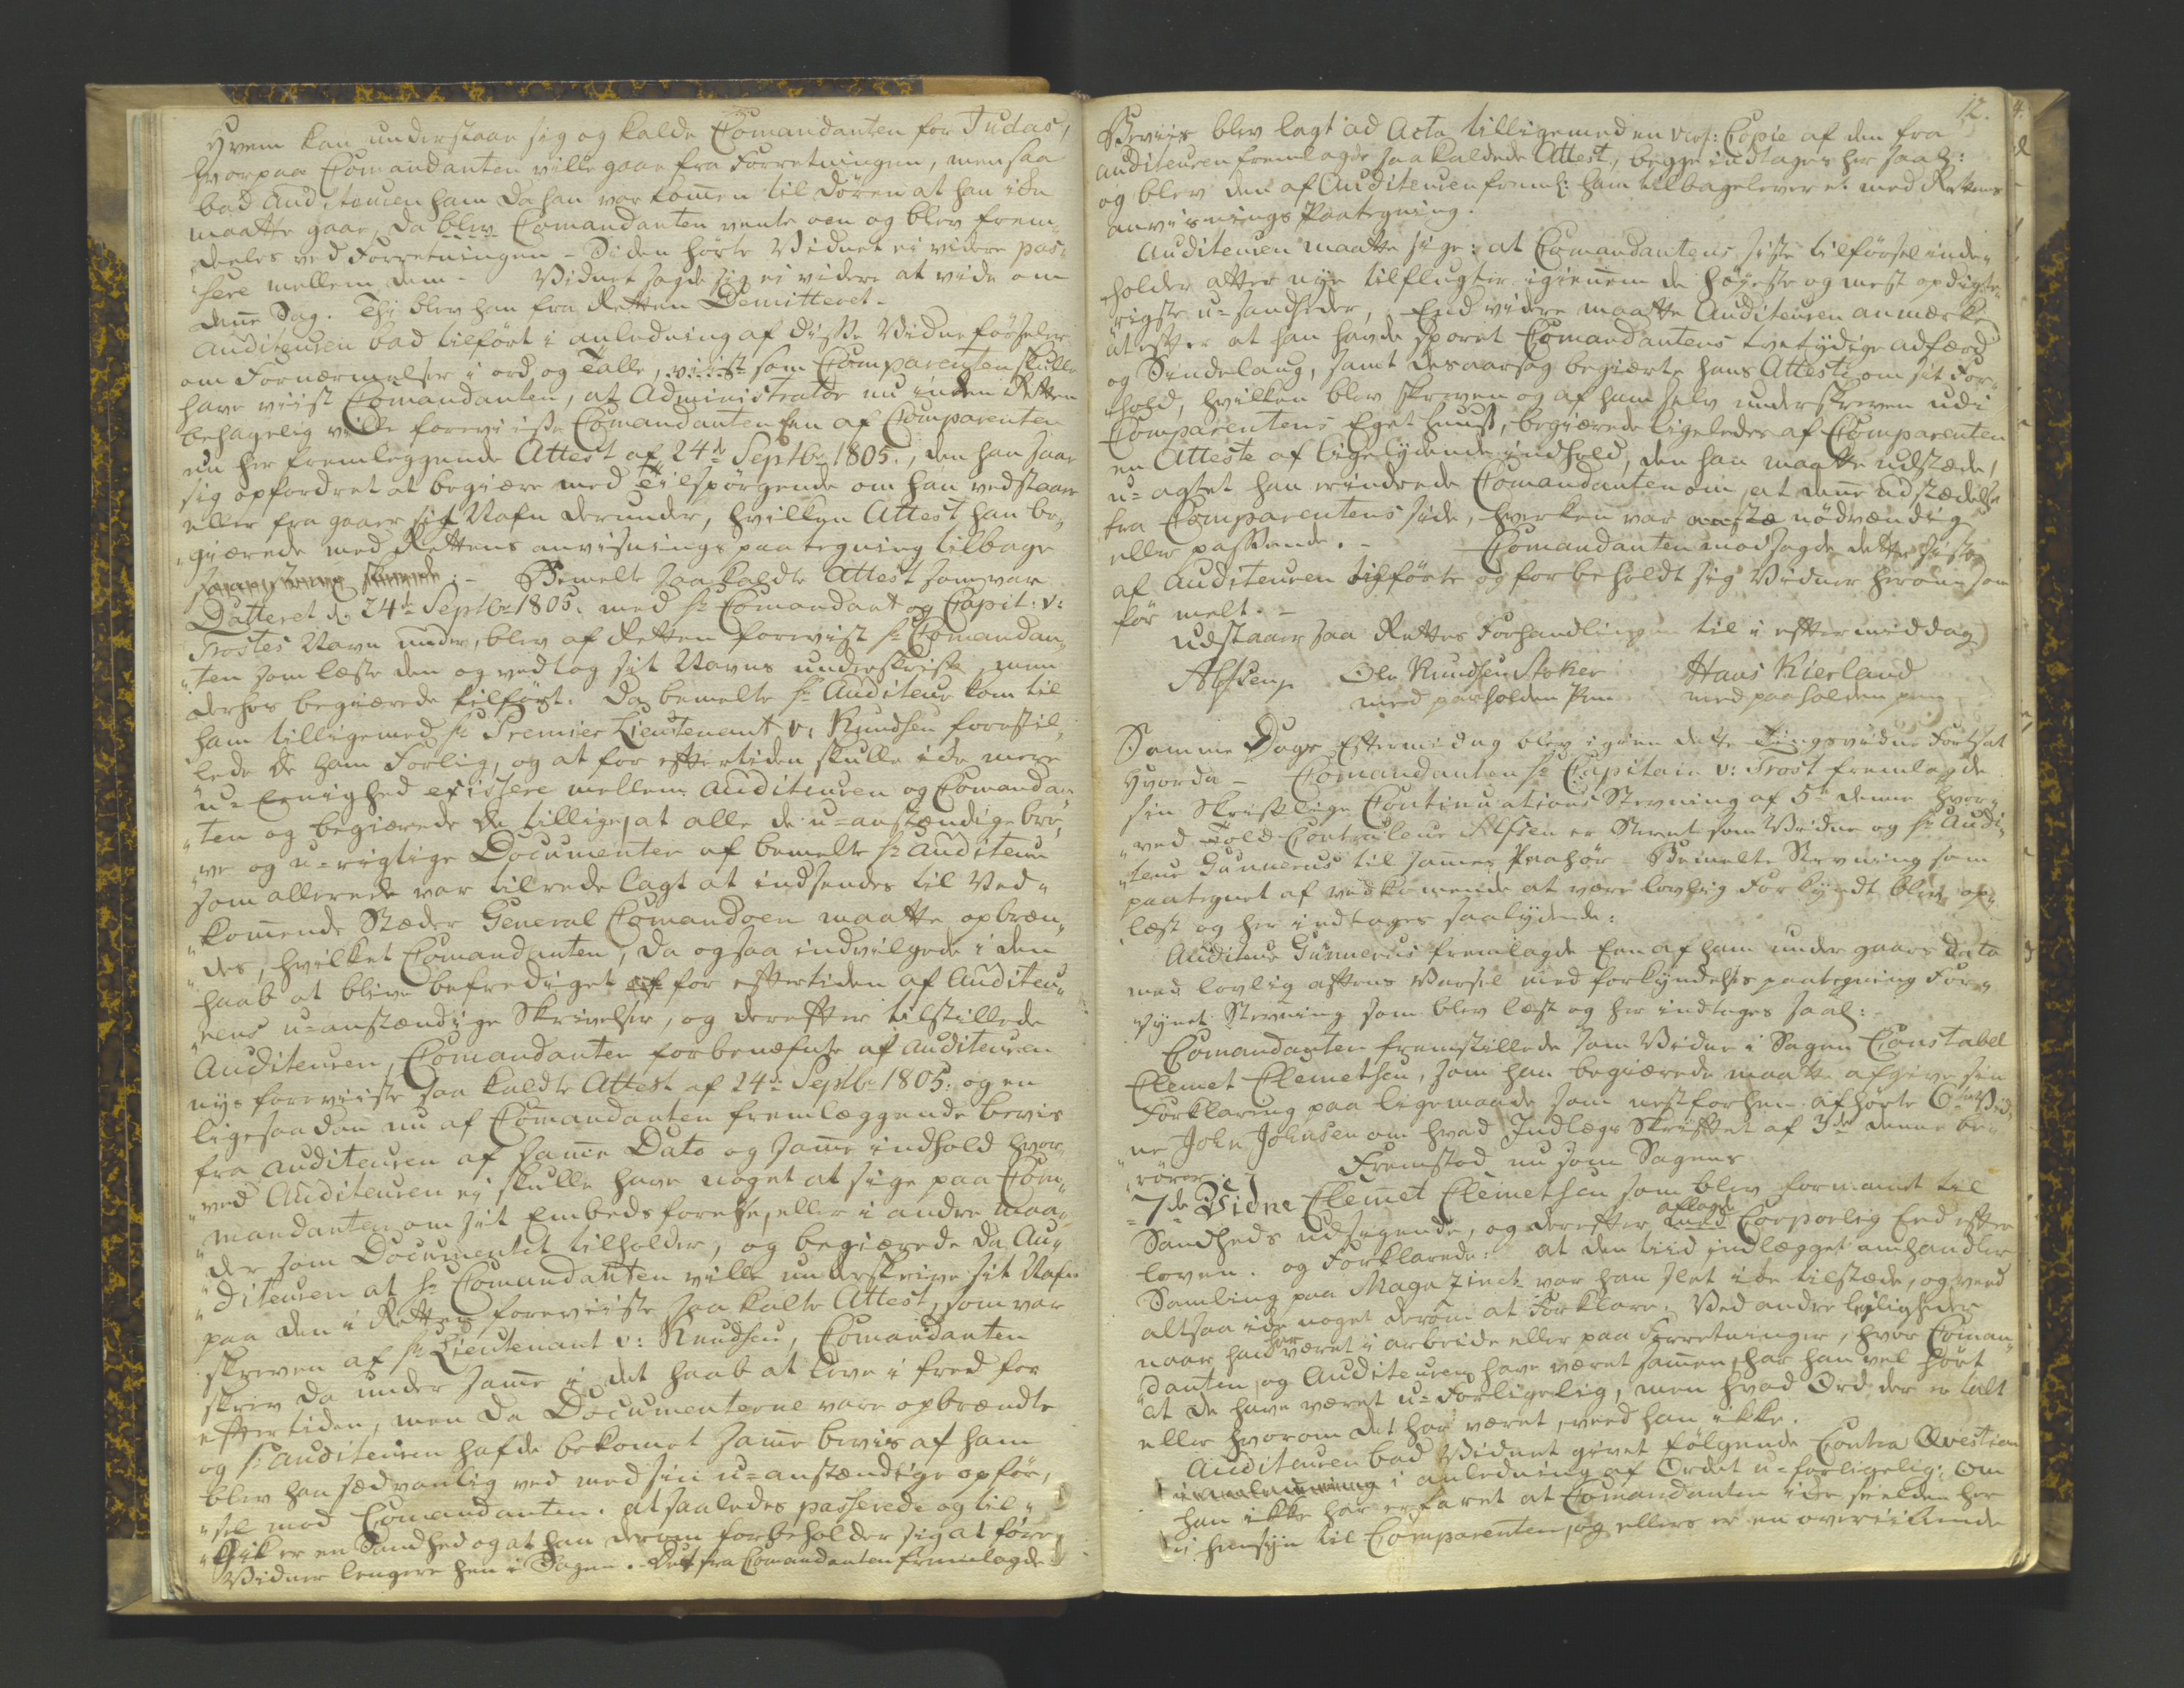 Hvem kan understaae sig og kalde Comandanten for Judas,
hvorpaa Comandanten ville gaae fra Forretningen, men saa
bad Auditeuren ham da han var komen til Dören at han ike
maatte gaae, da blev Comandanten vente oen og blev frem¬
deeles ved Forretningen - Siden hörte Vidnet ei videre pas¬
sere mellem dem - Vidnet sagde sig ei videre at vide om
denne Sag. Thi blev han fra Retten Demitteret -
Auditeuren bad tilfört i anledning af disse Vidneförseler
om Fornærmelser i ord og Talle, viist som Comparenten skulle
have viist Comandanten, at Administrator nu inden Retten
behagelig ville foreviise Comandanten en af Comparenten
nu her fremleggende Attest af 24de Septbr 1805, den han saae
sig opfordret at begiære med Tilspörgende om han vedstaaer
eller fra gaaer sit Nafn derunder, hvilken Attest han be¬
giærede med Rettens anvisnings paategning tilbage
Bemelte saa kaldte Attest som var
Datteret d. 24de Septbr 1805. med Hr Comandant og Capit: v:
Trostes Navn under, blev af Retten forevist Hr Comandan¬
ten som læste den og vedtog sit Navns underskrift, men
derhos begiærede tilfört. Da bemelte Hr Auditeur kom til
ham tilligemed Hr Premier Lieutenant v: Knudsen forestil¬
lede de ham Forlig, og at for eftertiden skulle ike mere
u=Eenighed existere mellem Auditeuren og Comandan¬
ten og begiærede de tillige, at alle de u=anstændige bre¬
ve og u=rigtige Documenter af bemelte Hr Auditeur
som allerede var tilrede lagt at indsendes til Ved¬
komende Stæder General Comandoen maatte opbræn¬
des, hvilket Comandanten, da ogsaa indvilgede i den
haab at blive befrediget for eftertiden af Auditeu¬
rens u=anstændige Skrivelser, og derefter tilstillede
Auditeuren, Comandanten forbenæfnte af Auditeuren
nys foreviiste saa kaldte Attest af 24de Septbr 1805. og en
ligesaadan nu af Comandanten fremlæggende bevis
fra Auditeuren af samme Dato og samme indhold hvor¬
ved Auditeuren ej skulle have noget at sige paa Com¬
mandanten om sit Embeds förelse, eller i andre Maa¬
der som Documentet tilholder, og begiærede da Au¬
diteuren at Hr Comandanten ville underskrive sit Nafn
paa den i Retten foreviiste saa kalte Attest, som var
skreven af Hr Lieutenant v: Knudsen, Comandanten
skrev da under samme i det haab at leve i fred for
eftertiden, men da Documenterne vare opbrændte
og Hr Auditeuren hafde bekomet samme bevis af ham
blev han sædvanlig ved med sin u=anstændige opför¬
sel mod Comandanten. at saaledes passerede og til¬
gik er en Sandhed og at han derom forbeholder sig at före
Vidner lengere hen i Sagen. Det fra Comandanten fremlagde
12.
Beviis blev lagt ad Acta tilligemed en verf: Copie af den fra
Auditeuren fremlagde saakaldede Attest, begge indtages her saal:
og blev den af Auditeuren fremL: ham tilbageleveret med Rettens
anvisnings Paategning.
Auditeuren maatte sige: at Comandantens siste tilförsel inde¬
holder atter nye tilflugter igienem de höyeste og mest opdigte¬
rigste u=sandheder, End videre maatte Auditeuren anmærke
at efter at han havde sporet Comandantens tvetydige adfærd
og Sindelaug, samt desaarsag begiærte hans Atteste om sit For¬
hold, hvilken blev skreven og af ham selv underskreven udi
Comparentens Eget huus, begiærede ligeledes af Comparenten
en Atteste af ligelydende indhold, den han maatte udstæde,
u=agtet han erindrede Comandanten om, at denne udstædelse
fra Comparentens side, hverken var nödvændig
eller passende. - Comandanten modsagde dette siste
af Auditeuren tilförte og forbeholdt sig Vidner herom som
för melt. -
Udstaaer saa Rettes Forhandlingen til i eftermiddag
Alsseng Ole Knudsen Stoker Hans Kierland
med paaholden Pen med paaholden pen
Samme Dags Eftermidag blev igien dette Tingsvidne Forsat
Hvorda - Comandanten Hr Capitain v: Trost fremlagde
sin skriftlige Continuations Stevning af 5te denne hvor¬
ved Told Controleur Alsseng er Stevnt som Vidne og Hr Audi¬
teur Gunnerus til sammes Paahör - Bemelte Stevning som
paategnet af vedkomende at være lovlig Forkyndt blev op¬
læst og her indtages saalydende:
Auditeur Gunnerus fremlagde Een af ham under gaars Dato
med lovlig aftens Varsel med forkyndelses paategning For¬
synet Stevning som blev læst og her indtages saal:
Comandanten fremstillede som Vidne i Sagen Constabel
Clemet Clemetsen, som han begiærede maatte afgive sin
Forklaring paa ligemaade som nestforhen afhörte 6te Vid¬
ne John Johnsen om hvad Indlægs Skriftet af 3de denne be¬
rörer. Fremstod nu som Sagens
7de Vidne Clemet Clemetsen som blev formanet til
Sandheds udsigende, og derefter aflagde Corporlig Eed efter
loven. og Forklarede: at den tiid indlægget omhandler
Samling paa Magazinet var han slet ike tilstæde, og veed
altsaa ike noget derom at Forklare. Ved andre leiligheder
naar han har været i arbeide eller paa Forretninger, hvor Coman¬
danten og Auditeuren have været sammen, har han vel hört
at de have været u=forligelig, men hvad Ord der er talt
eller hvorom det har været, veed han ikke.
Auditeuren bad Vidnet givet fölgende Contra Qvestion
i anledning af Ordet u=forligelig: Om
han ikke har erfaret at Comandanten ike sielden her
i hensyn til Comparenten, og ellers er en overiilende